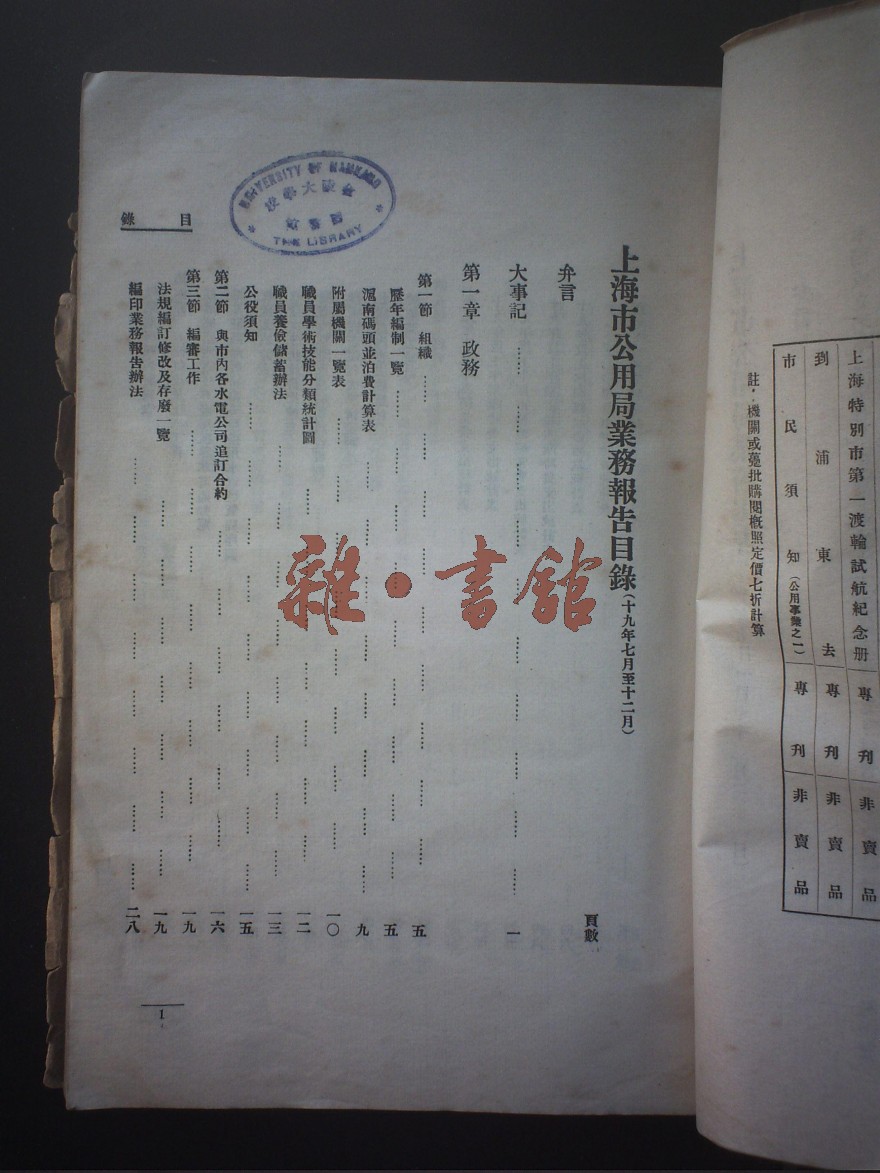 上海特別市第一渡輪試航紀念册 專刊 非賣品
到浦東去 專刊 非賣品
市民須知(公用事業之一) 專刊 非賣品
註・機關或躉批購閱槪照定價七折計算
上海市公用局業務報告目錄(十九年七月至十二月)
頁數
弁言
大事記 一
第一章 政務
第一節 組織 五
歷年編制一覽 五
滬南碼頭並泊費計算表 九
附屬機關一覽表 一〇
職員學術技能分類統計圖 一二
職員養儉儲蓄辦法 一三
公役須知 一五
第二節 與市內各水電公司追訂合約 一六
第三節 編審工作 一九
法規編訂修改及存廢一覽 一九
編印業務報告辦法 二八
目錄
1
UNIVERSITY OF NANKING
THE LIBRARY
雜・書館